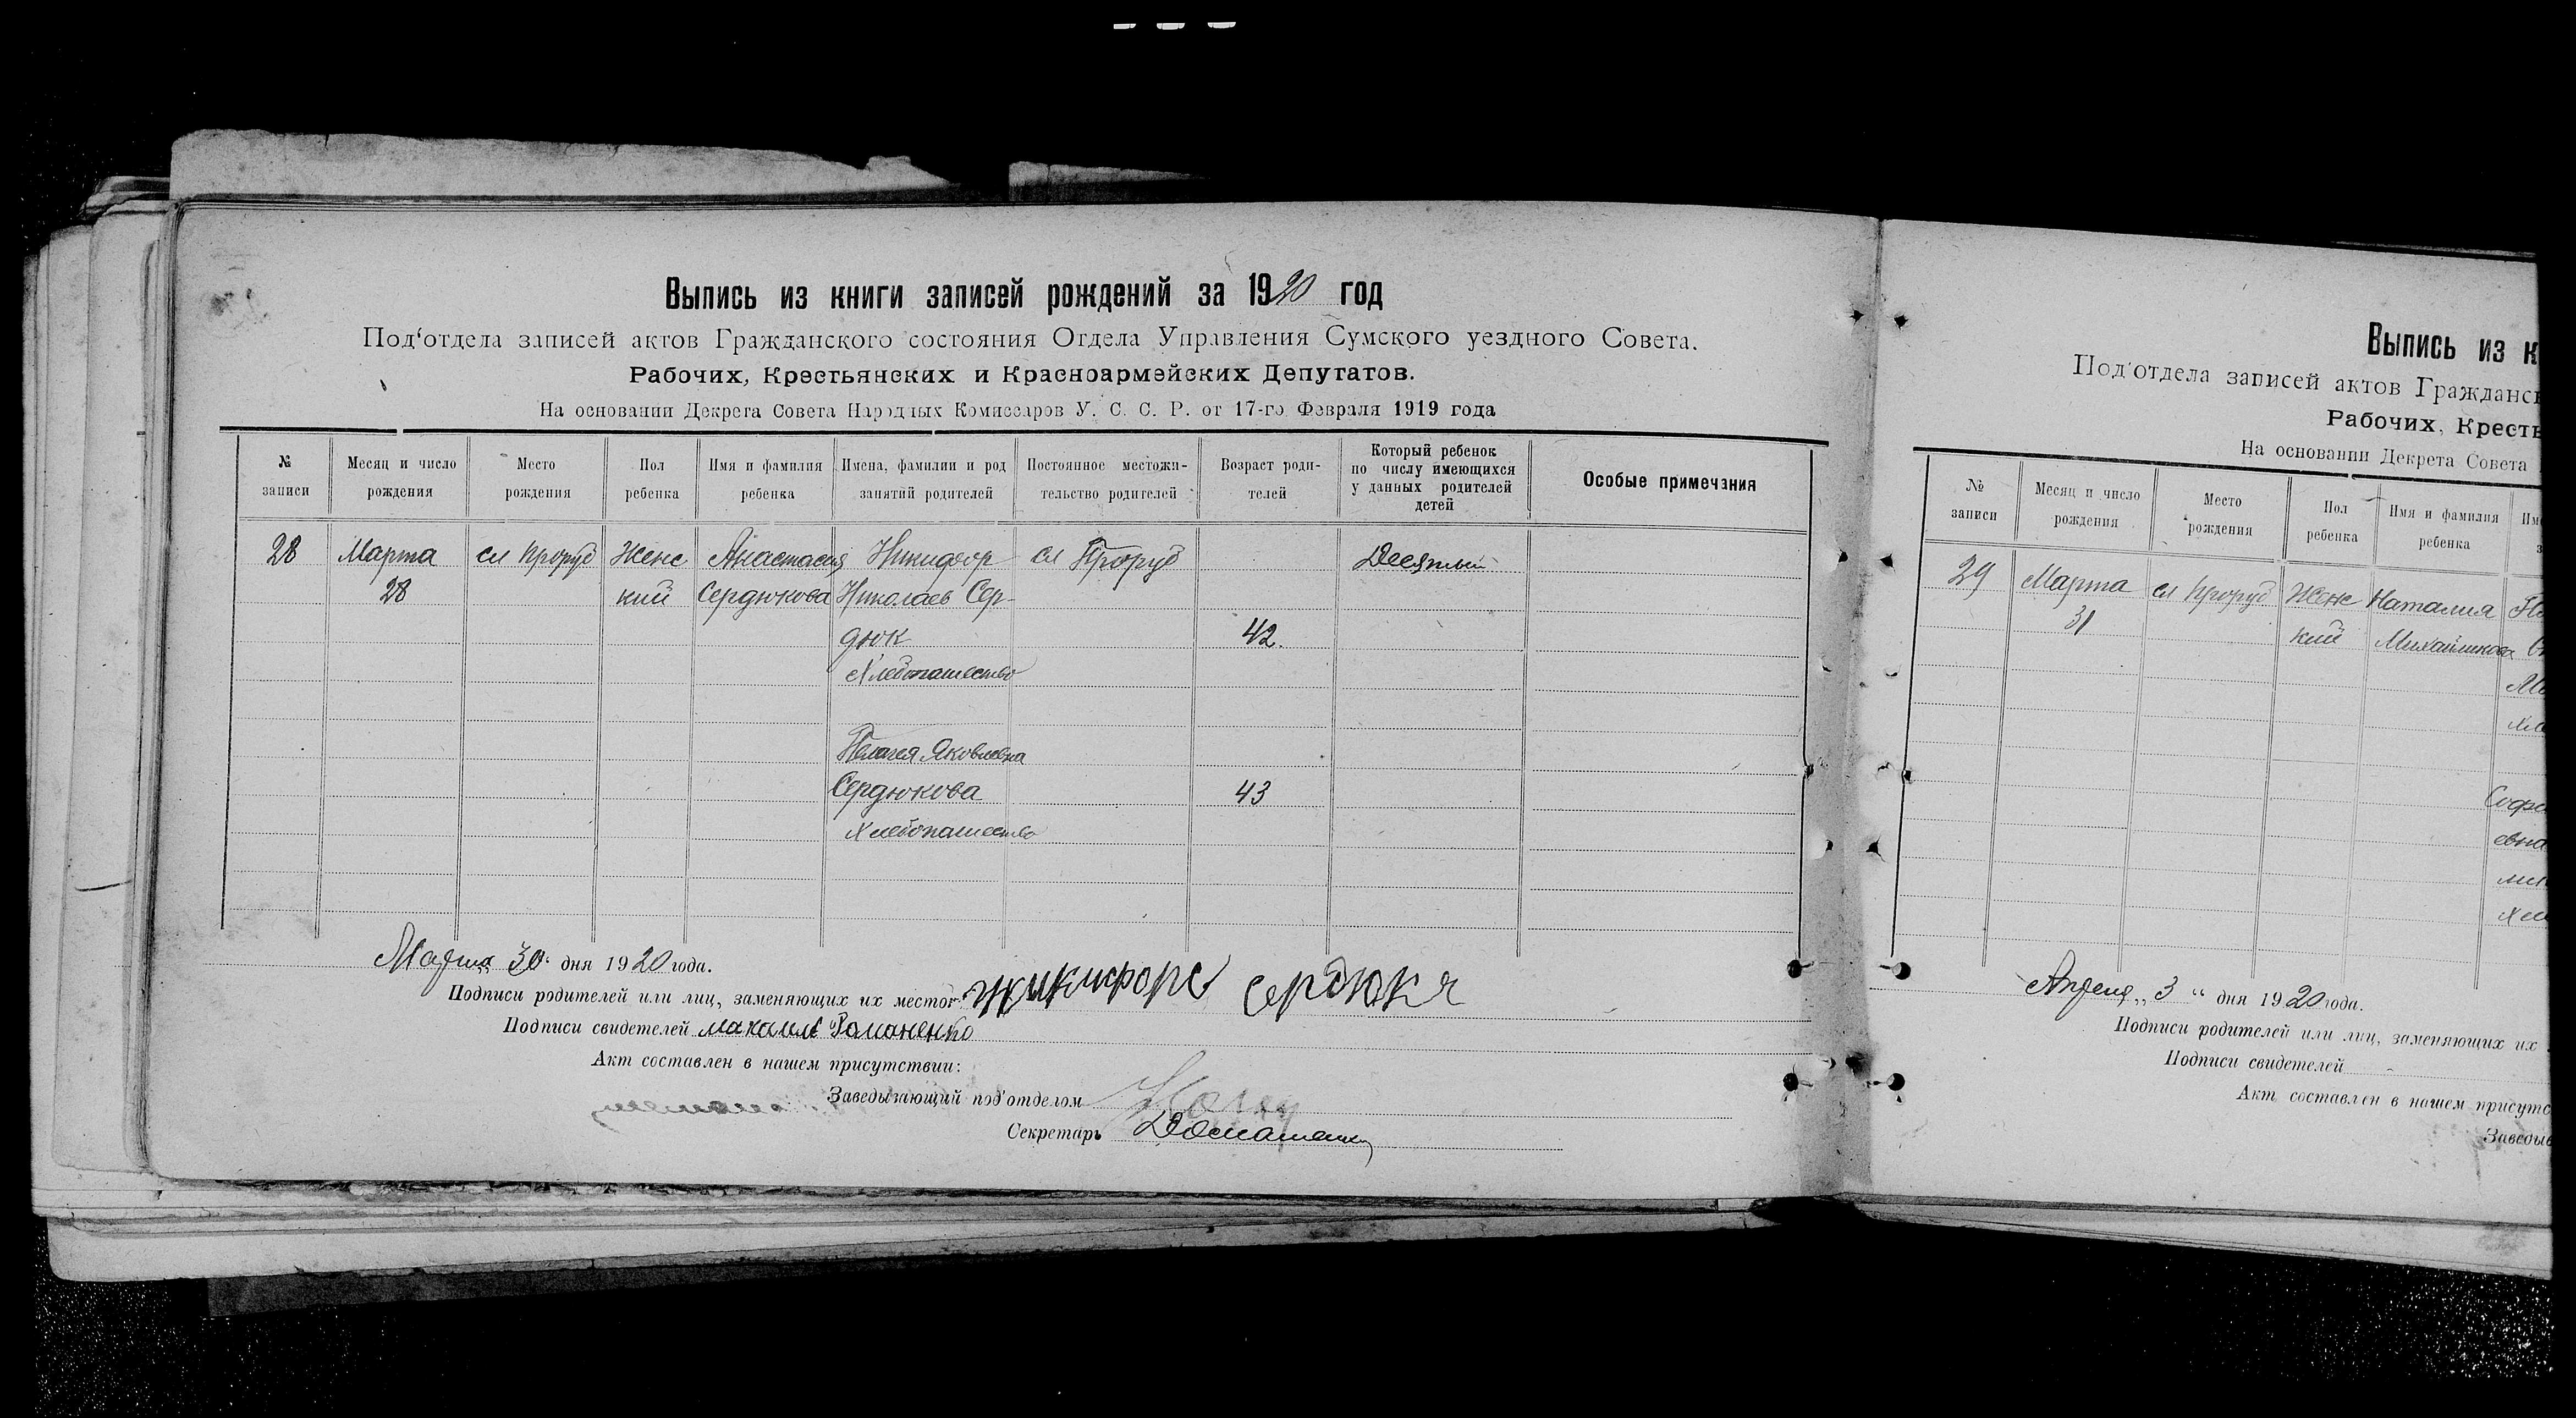 Выпись из книги записей рождений за 1920 год
Под'отдела записей актов Гражданского состояния Отдела Управления Сумского уездного Совета.
Рабочих, Крестьянских и Красноармейских Депутатов.
На основании Декрета Совета Народных Комиссаров У. С. С. Р. от 17-го Февраля 1919 года
№ записи
Месяц и число рождения
Место рождения
Пол ребенка
Имя и фамилия ребенка
Имена, фамилии и род занятий родителей
Постоянное местожительство родителей
Возраст родителей
Который ребенок по числу имеющихся у данных родителей детей
Особые примечания
28 Марта сл Проруб Женс Анастасия Никифор сл Проруб Десятый
28 кий Сердюкова Николаев Сер-
дюк 42.
Хлебопашество
Пелагея Яковлевна
Сердюкова 43
Хлебопашество
Марта 30 дня 1920 года.
Подписи родителей или лиц, заменяющих их место Никифоре Сердюка
Подписи свидетелей Михаил Романенко
Акт составлен в нашем присутствии:
Заведывающий под'отделом
Секретарь
Выпись из к
Под'отдела записей актов Гражданск
Рабочих, Кресть
На основании Декрета Совета
№ записи
Месяц и число рождения
Место рождения
Пол ребенка
Имя и фамилия ребенка
29 Марта сл Проруб Женс Наталия
31 кий Михайликова
Апреля „ 3 “ дня 1920 года.
Подписи родителей или лиц, заменяющих их
Подписи свидетелей
Акт составлен в нашем присутс
Заведыв